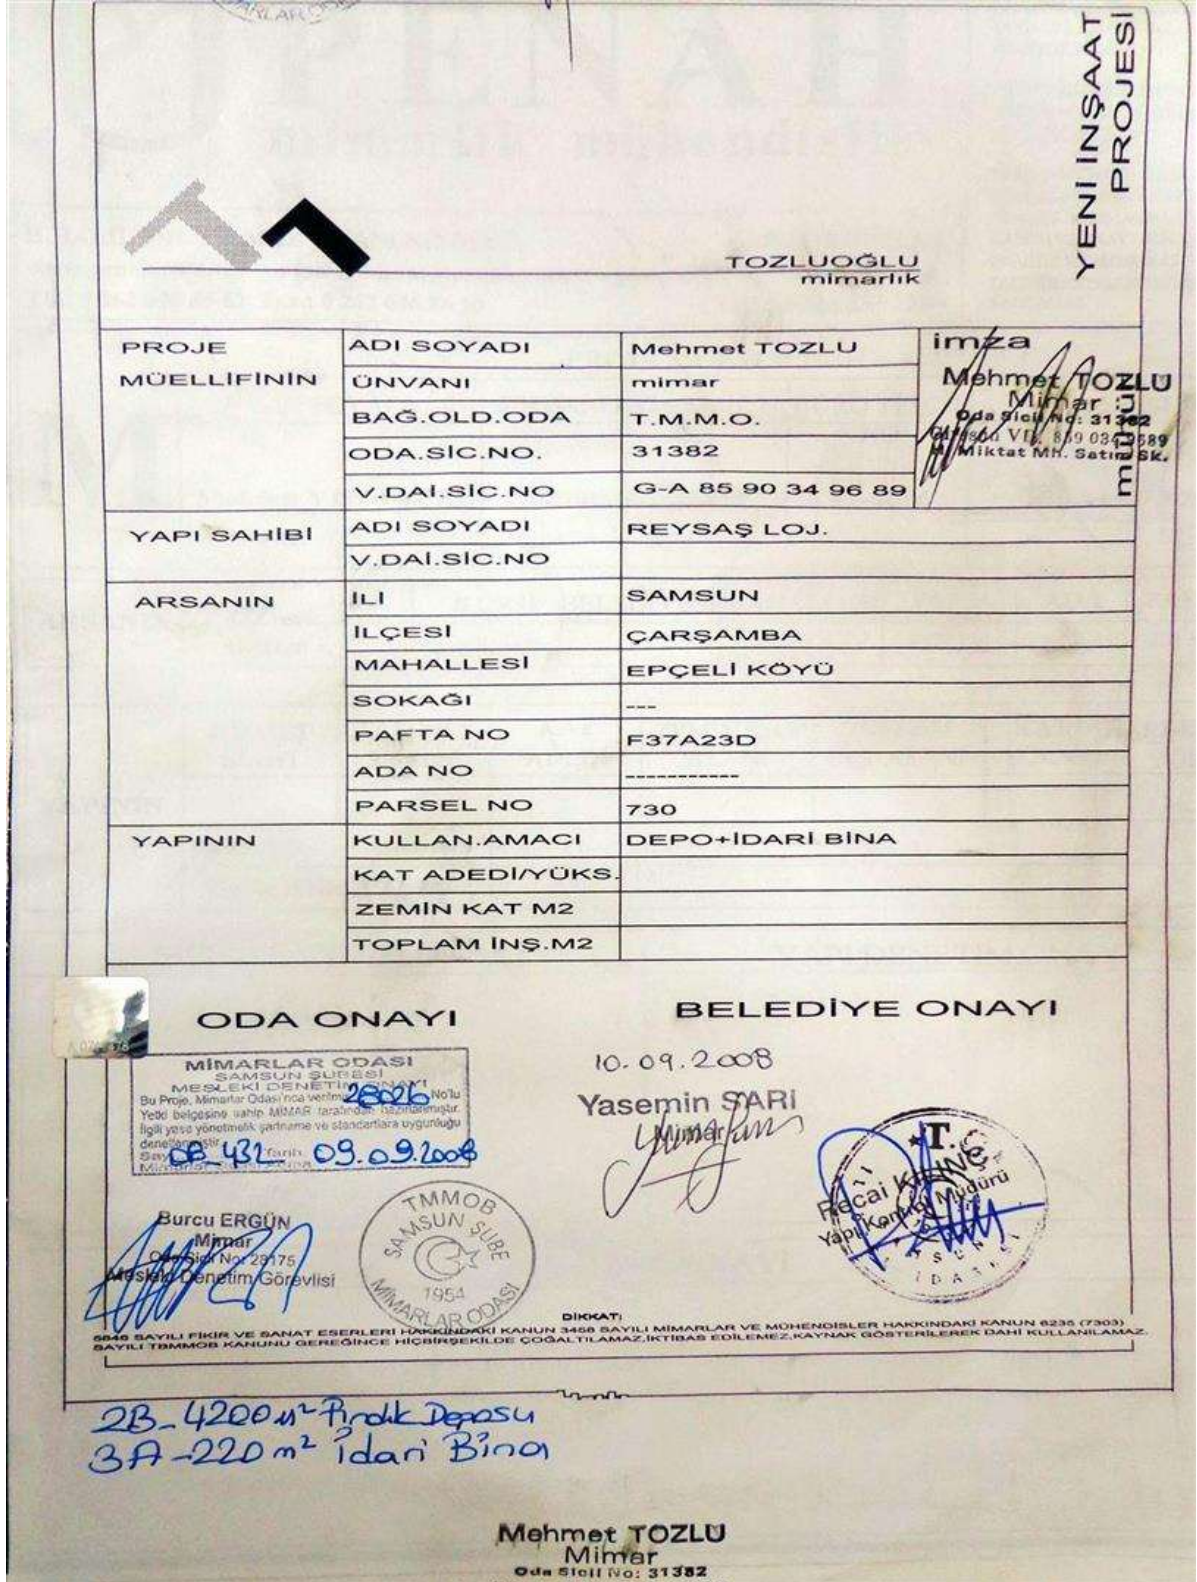 MİMARLAR ODASI
YENİ İNŞAAT
PROJESİ
TOZLUOĞLU
mimarlık
PROJE
MÜELLİFİNİN
ADI SOYADI
Mehmet TOZLU
ÜNVANI
mimar
BAĞ.OLD.ODA
T.M.M.O.
ODA.SİC.NO.
31382
V.DAİ.SİC.NO
G-A 85 90 34 96 89
imza
Mehmet TOZLU
Mimar
Oda Sicil No: 31382
Miktat Mh. Satım Sk.
mühür
YAPI SAHİBİ
ADI SOYADI
REYSAŞ LOJ.
V.DAİ.SİC.NO
ARSANIN
İLİ
SAMSUN
İLÇESİ
ÇARŞAMBA
MAHALLESİ
EPÇELİ KÖYÜ
SOKAĞI
---
PAFTA NO
F37A23D
ADA NO
-----------
PARSEL NO
730
YAPININ
KULLAN.AMACI
DEPO+İDARİ BİNA
KAT ADEDİ/YÜKS.
ZEMİN KAT M2
TOPLAM İNŞ.M2
ODA ONAYI
MİMARLAR ODASI
SAMSUN ŞUBESİ
MESLEKİ DENETİM ONAYI
Bu Proje, Mimarlar Odası'nca verilmiş 28026 No'lu
Yetki belgesine sahip MİMAR tarafından hazırlanmıştır.
İlgili yasa yönetmelik şartname ve standartlara uygunluğu
denetlenmiştir.
Sayı 08-432 Tarih 09.09.2008
Burcu ERGÜN
Mimar
Oda Sicil No: 28175
Mesleki Denetim Görevlisi
TMMOB
SAMSUN ŞUBE
1954
MİMARLAR ODASI
BELEDİYE ONAYI
10.09.2008
Yasemin SARI
Mimar
T.
Recai KILINÇ
Yapı Kontrol Müdürü
DİKKAT;
5846 SAYILI FİKİR VE SANAT ESERLERİ HAKKINDAKİ KANUN 3458 SAYILI MİMARLAR VE MÜHENDİSLER HAKKINDAKİ KANUN 6235 (7303)
SAYILI TBMMOB KANUNU GEREĞİNCE HİÇBİRŞEKİLDE ÇOĞALTILAMAZ,İKTİBAS EDİLEMEZ,KAYNAK GÖSTERİLEREK DAHİ KULLANILAMAZ.
2B-4200 m² Fındık Deposu
3A-220 m² İdari Bina
Mehmet TOZLU
Mimar
Oda Sicil No: 31382